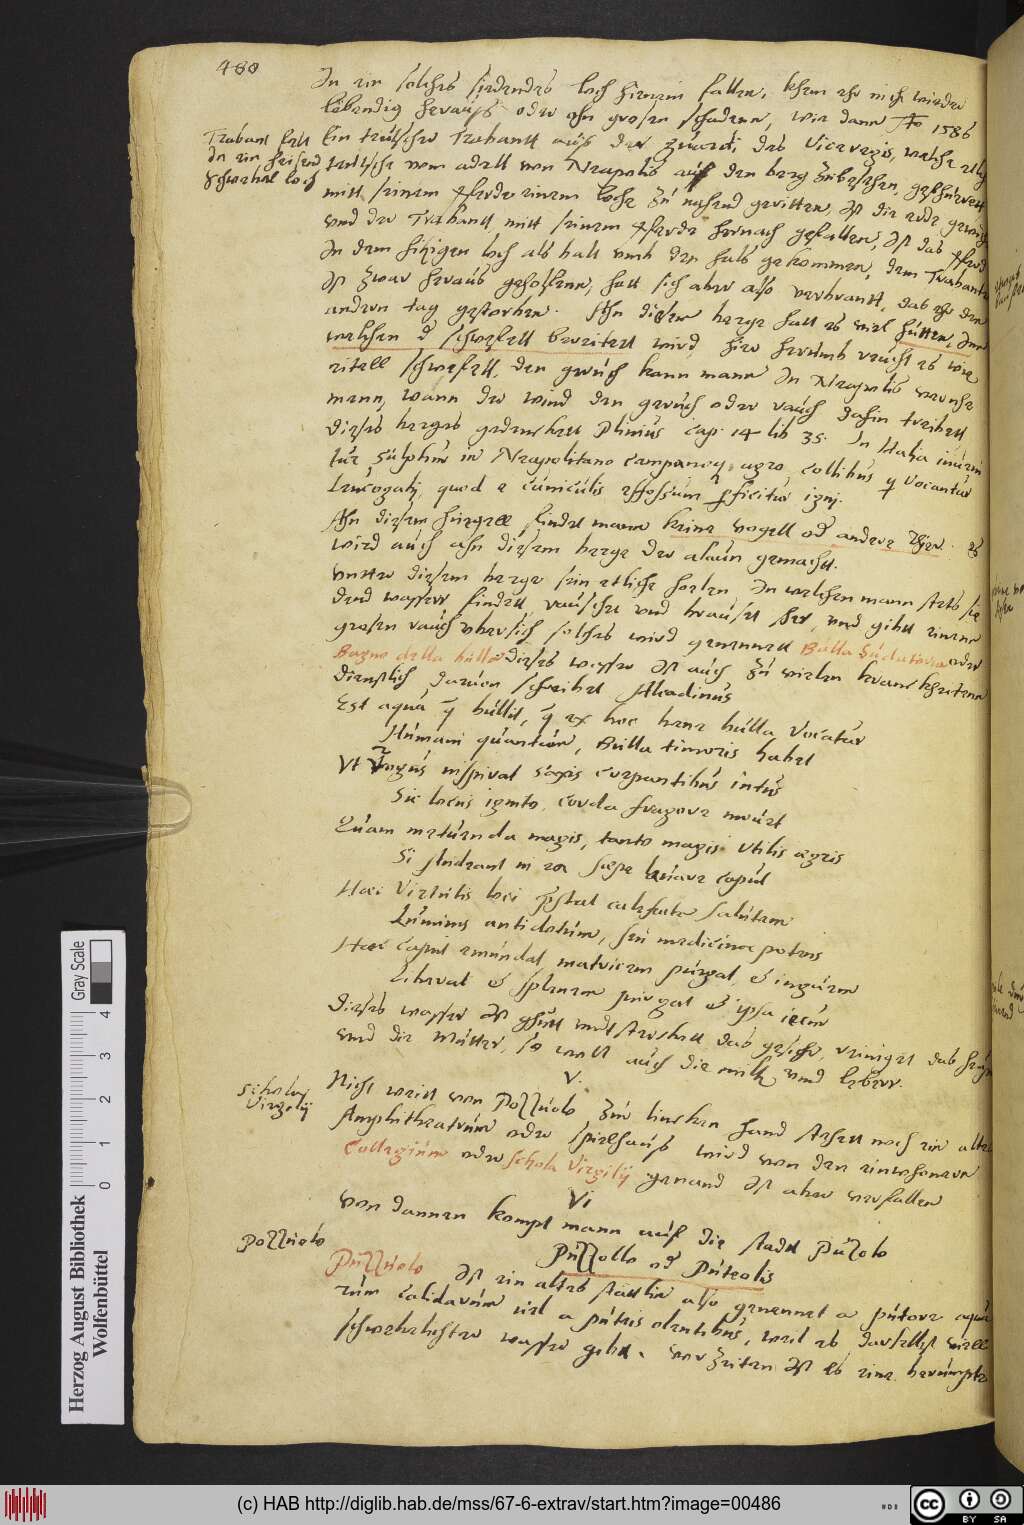 480
In ein solches siedendes loch hienein fallen, khem ehr nich wieder
lebendig heraus oder ohn grosen schadenn, wie dann Ao 1586
Trabant felt
in ein heisend
schwebel loch
Ein teutscher Trabantt aus der guardi, des Viceregis, welche etlig
teutsche vom adell von Neapolis auf den berg zubesehen, gefhürett
mitt seinem pferde einem loche zu nahend geritten, ist die erde gewich
und der Trabantt mitt seinem pferde hernach gefallenn, ist das pferd
In dem hitzigen loch als balt umb den hals gekommen, dem Trabante
ist zwar heraus geholffenn, hatt sich aber also verbrantt, das ehr den
andern tag gestorben. Ahn diesem berge hatt es viel hütten, Inn
welchen d schwefell bereitett wird, hier herumb reucht es wie
eitell schwefell, den geruch kann mann In Neapolis vernehe
menn, wann der wind den geruch oder rauch dahin treibett
dieses berges gedenckett Plinius cap. 14 lib 35. In Italia inueni
tur sulphur in Neapolitano Campanoq agro collibus q vocantur
Leucogæi, quod e cuniculis effossum perficitur igni.
Ahn diesem huegell findet mann keine vogell od andere thier. Es
wird auch ahn diesem berge der alaun gemacht.
Unter diesem berge sein etliche holen, In welchen mann stets sie
dend wasserr findett, rauschet und brauset sehr, und gibtt einenn
grosen rauch uber sich, solches wird genennett Bulla Sudatoria oder
Bagno della bulla dieses wasser ist auch zu vielen kranckheitenn
dienstlich, daruon schreibet Alcadinus
Est aqua q bullit, q ex hoc bene bulla vocatur
Humani quantum, Bulla timoris habet
Ut Rogus inspirat saxis crepantibus intus
Sic locus ignito corda fragore mouet
Quam metuenda magis, tanto magis utilis ægris
Si studeant in ea sæpe lauare caput
Hæc Virtutis loci præstat calefacta salutem
Luminis antidotum, seu medicina potens
Hæc caput emundat, matricem purgat, et inguen
Liberat et splenem purgat et ipsa iecur
Dieses wasser ist gutt undt sterckett das gesicht, reiniget das haupt
und die Mutter, so woll auch die miltz und leberr.
V.
Schola
Virgilij
Nicht weitt von Pozzuolo zur lincken hand stehett noch ein altes
Amphitheatrum oder spielhaus wird von den einwohnern
Collegium oder schola Virgilij genand ist aber verfallen
VI
Von dannen kompt mann auf die stadt Puzolo
Pozzuolo
Puzzollo od Puteolis
Puzzuolo ist ein altes stättlin also genennet a putore aqua
rum calidarum uel a puteis olentibus, weil es daselbst viell
schwebelichter wasser gibtt, vor Zeiten ist es eine beruempte
Gray Scale
0 1 2 3 4
Herzog August Bibliothek
Wolfenbüttel
(c) HAB http://diglib.hab.de/mss/67-6-extrav/start.htm?image=00486
BY SA